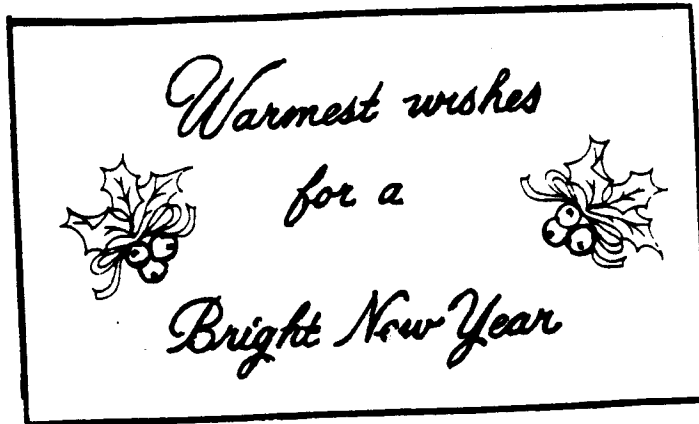 Warmest wishes
for a
Bright New Year